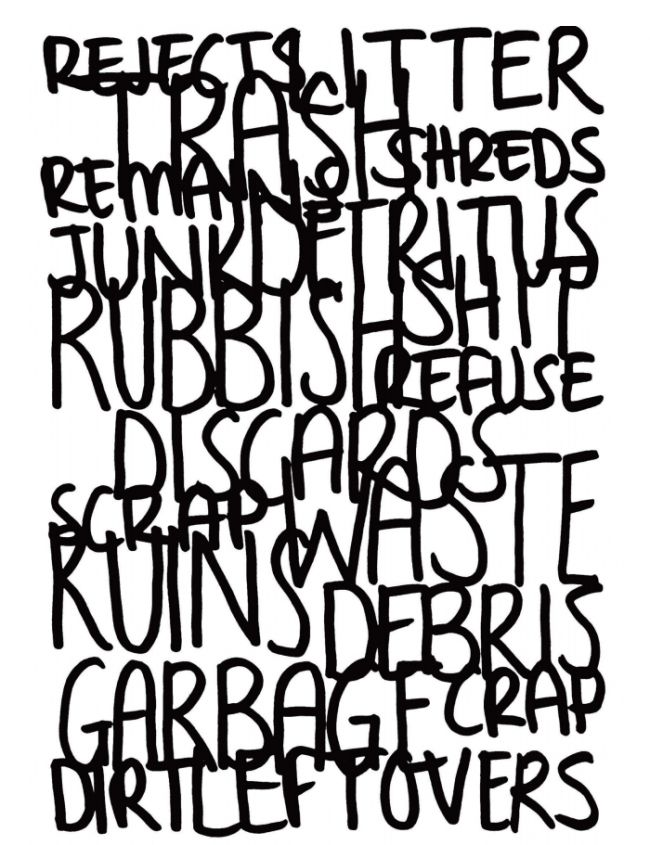 REJECTS LITTER
TRASH
REMAINS SHREDS
JUNK DETRITUS
RUBBISH SHIT
REFUSE
DISCARDS
SCRAP WASTE
RUINS DEBRIS
GARBAGE CRAP
DIRT LEFTOVERS